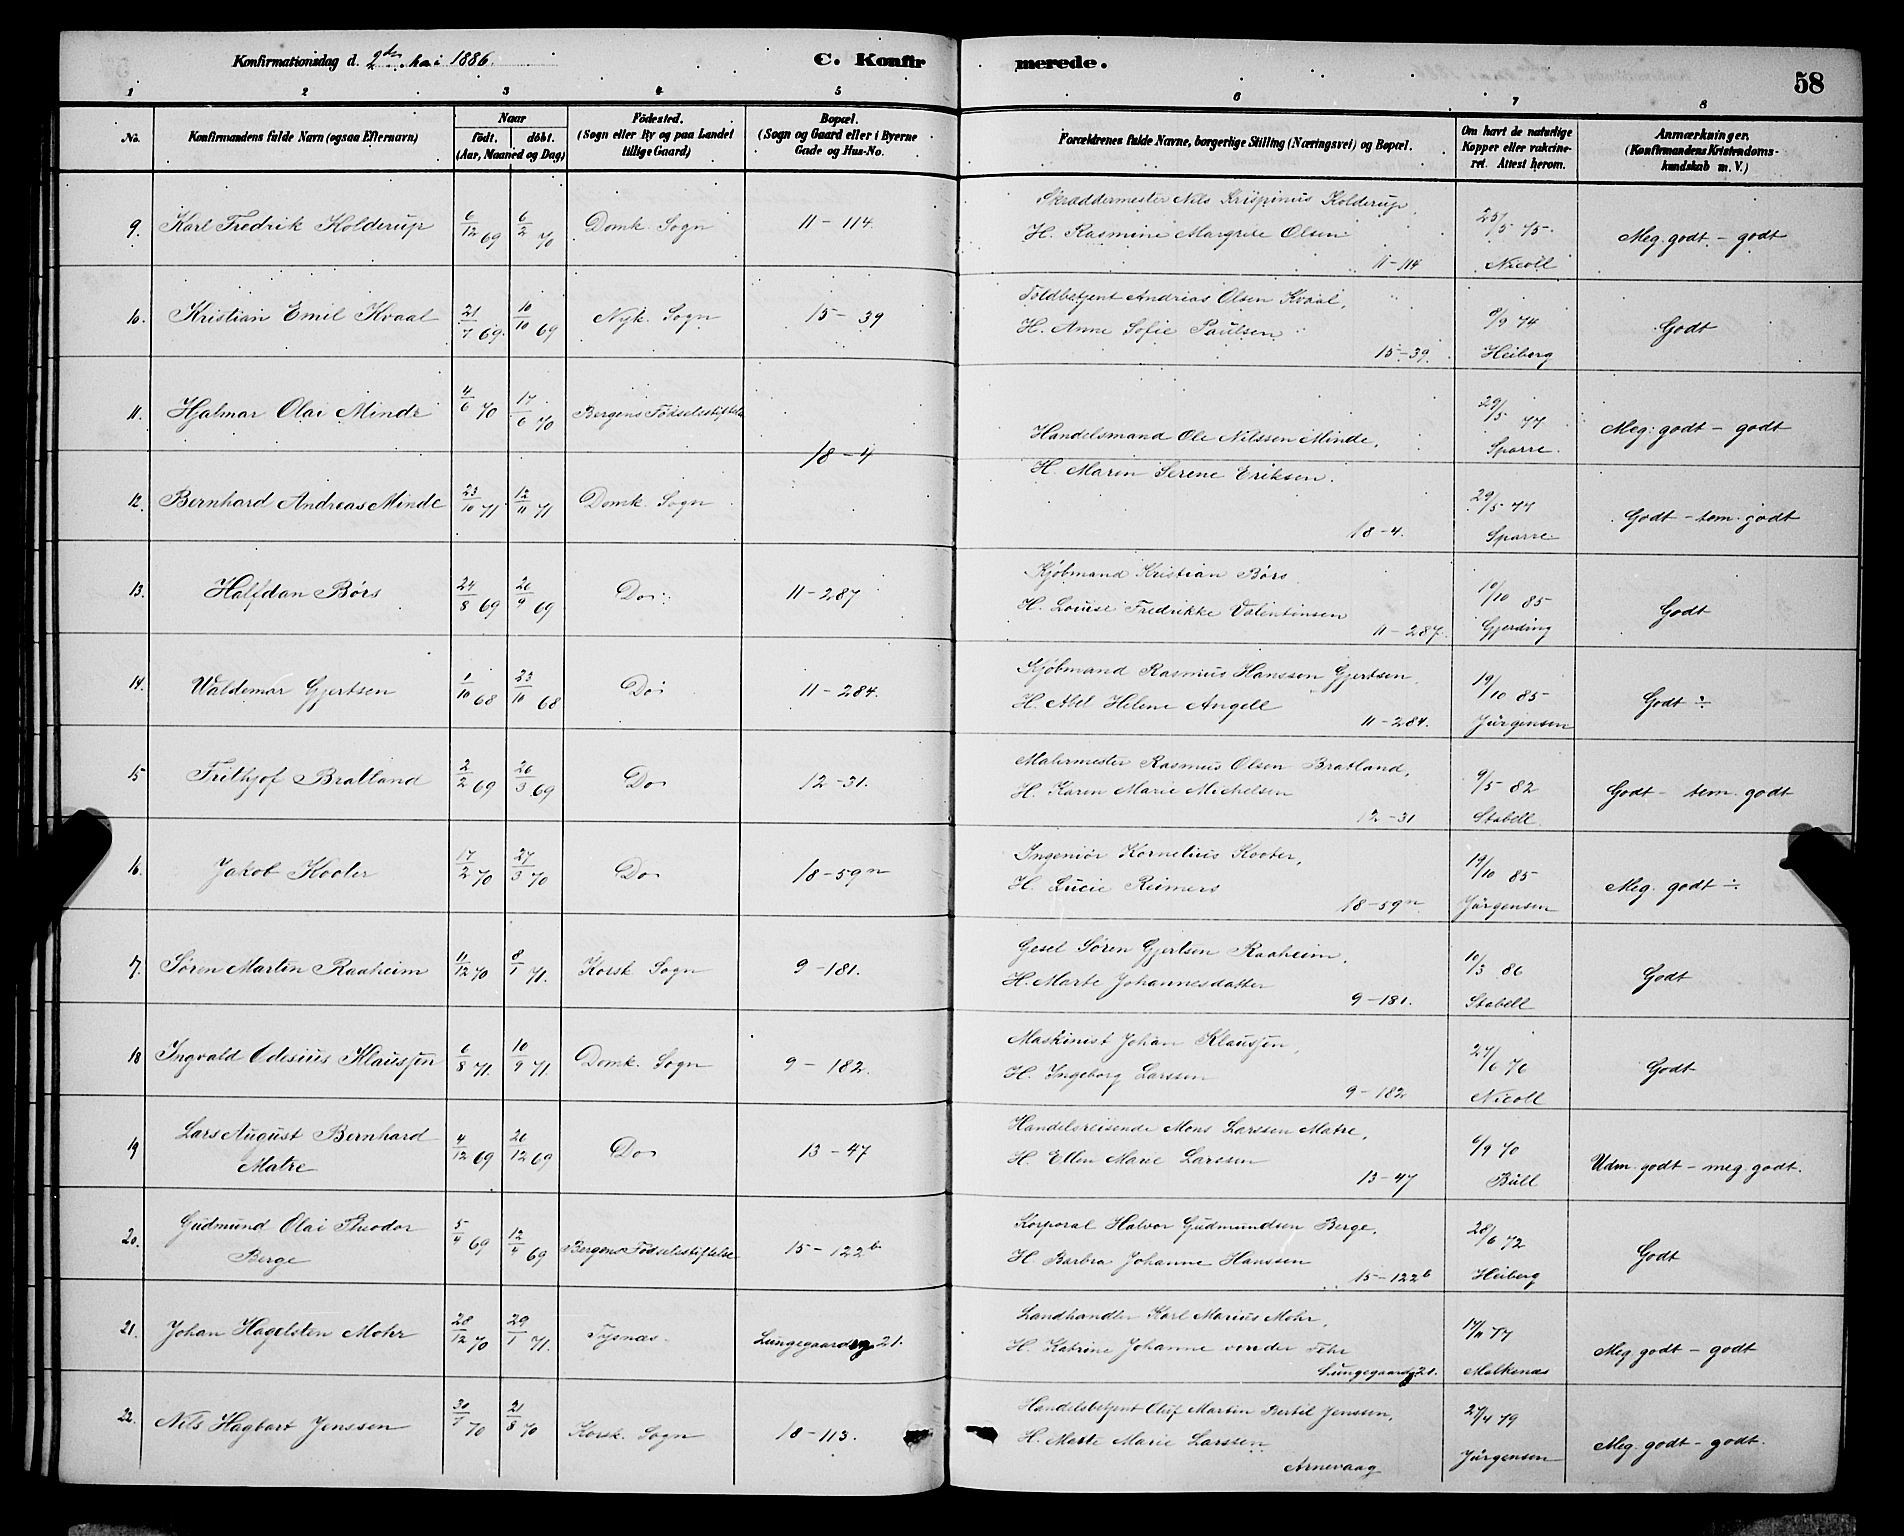 Konfirmationsdag d. 2den Mai 1886.
C. Konfirmerede.
58
1 2 3 4 5 6 7 8
No.
Konfirmandens fulde Navn (ogsaa Efternavn)
Naar
født. døbt.
(Aar, Maaned og Dag)
Fødested.
(Sogn eller By og paa Landet
tillige Gaard)
Bopæl.
(Sogn og Gaard eller i Byerne
Gade og Hus-No.
Forældrenes fulde Navne, borgerlige Stilling (Næringsvei) og Bopæl.
Om havt de naturlige
Kopper eller vakcine-
ret. Attest herom.
Anmærkninger.
(Konfirmandens Kristendoms-
kundskab m. V.)
9. Karl Fredrik Kolderup 6/12 69 6/2 70 Domk. Sogn 11 - 114.
Skræddermester Nils Krispinus Kolderup,
H. Rasmine Margrete Olsen
11 - 114
25/5 75.
Nicoll
Meg. godt - godt
10. Kristian Emil Kvaal 21/7 69. 10/10 69 Nyk. Sogn 15 - 39
Toldbetjent Andreas Olsen Kvaal,
H. Anne Sofie Paulsen
15 - 39.
8/9 74
Heiberg
Godt
11. Hjalmar Olai Minde 4/6 70 17/6 70 Bergens Fødselsstiftelse
18 - 4
Handelsmand Ole Nilssen Minde,
H. Maren Serene Eriksen.
29/5 77
Sparre.
Meg. godt - godt
12. Bernhard Andreas Minde 23/10 71. 12/11 71 Domk. Sogn
18 - 4.
29/5 77
Sparre
Godt - tem. godt
13. Halfdan Børs 24/8 69 26/9 69 Do. 11 - 287
Kjøbmand Kristian Børs
H. Louise Fredrikke Valentinsen
11 - 287.
19/10 85
Gjerding
Godt
14. Waldemar Gjertsen 1/10 68 23/10 68 Do 11 - 284.
Kjøbmand Rasmus Hansson Gjertsen,
H. Abel Helene Angell
11 - 284.
19/10 85
Jürgensen
Godt ÷
15 Frithjof Bratland 2/2 69 26/3 69 Do 12 - 31.
Malermester Rasmus Olsen Bratland,
H. Karen Marie Michelsen
12 - 31
9/5 82
Stabell
Godt - tem. godt
16. Jakob Kooter 17/2 70 27/3 70 Do 18 - 59n
Ingeniør Kornelius Kooter,
H. Lucie Reimers
18 - 59n
19/10 85
Jürgensen
Meg. godt ÷
17. Søren Martin Raaheim 11/12 70 8/1 71. Korsk. Sogn 9 - 181.
Gesel Søren Gjertsen Raaheim,
H. Marte Johannesdatter
9 - 181.
10/3 86
Stabell
Godt
18 Ingvald Edesius Klausjen 6/8 71. 10/9 71. Domk. Sogn 9 - 182.
Maskinist Johan Klausjen,
H. Ingeborg Larssen
9 - 182
27/6 76
Nicoll
Godt
19 Lars August Bernhard
Matre 4/12 69 26/12 69 Do 13 - 47
Handelsreisende Mons Larssen Matre,
H. Ellen Marie Larssen
13 - 47
6/9 70
Bull
Udm. godt - meg. godt.
20. Gudmund Olai Theodor
Berge 5/4 69 12/4 69 Bergens Fødselsstiftelse 15 - 122b
Korporal Halvor Gudmundsen Berge,
H. Barbra Johanne Hanssen
15 - 122b
28/6 72
Heiberg
Godt
21. Johan Hagelsten Mohr 28/12 70 29/1 71. Tysnæs. Lungegaardsg 21.
Landhandler Karl Marius Mohr,
H. Katrine Johanne von der Fehr
Lungegaardsg 21.
14/11 77
Meg. godt - godt
22. Nils Hagbart Jenssen 70 21/8 70 Korsk. Sogn 18 - 113.
Handelsbetjent Oluf Martin Bertil Jenssen,
H. Merte Marie Larssen
Arnevaag
27/4 79
Jürgensen
Meg. godt - godt.